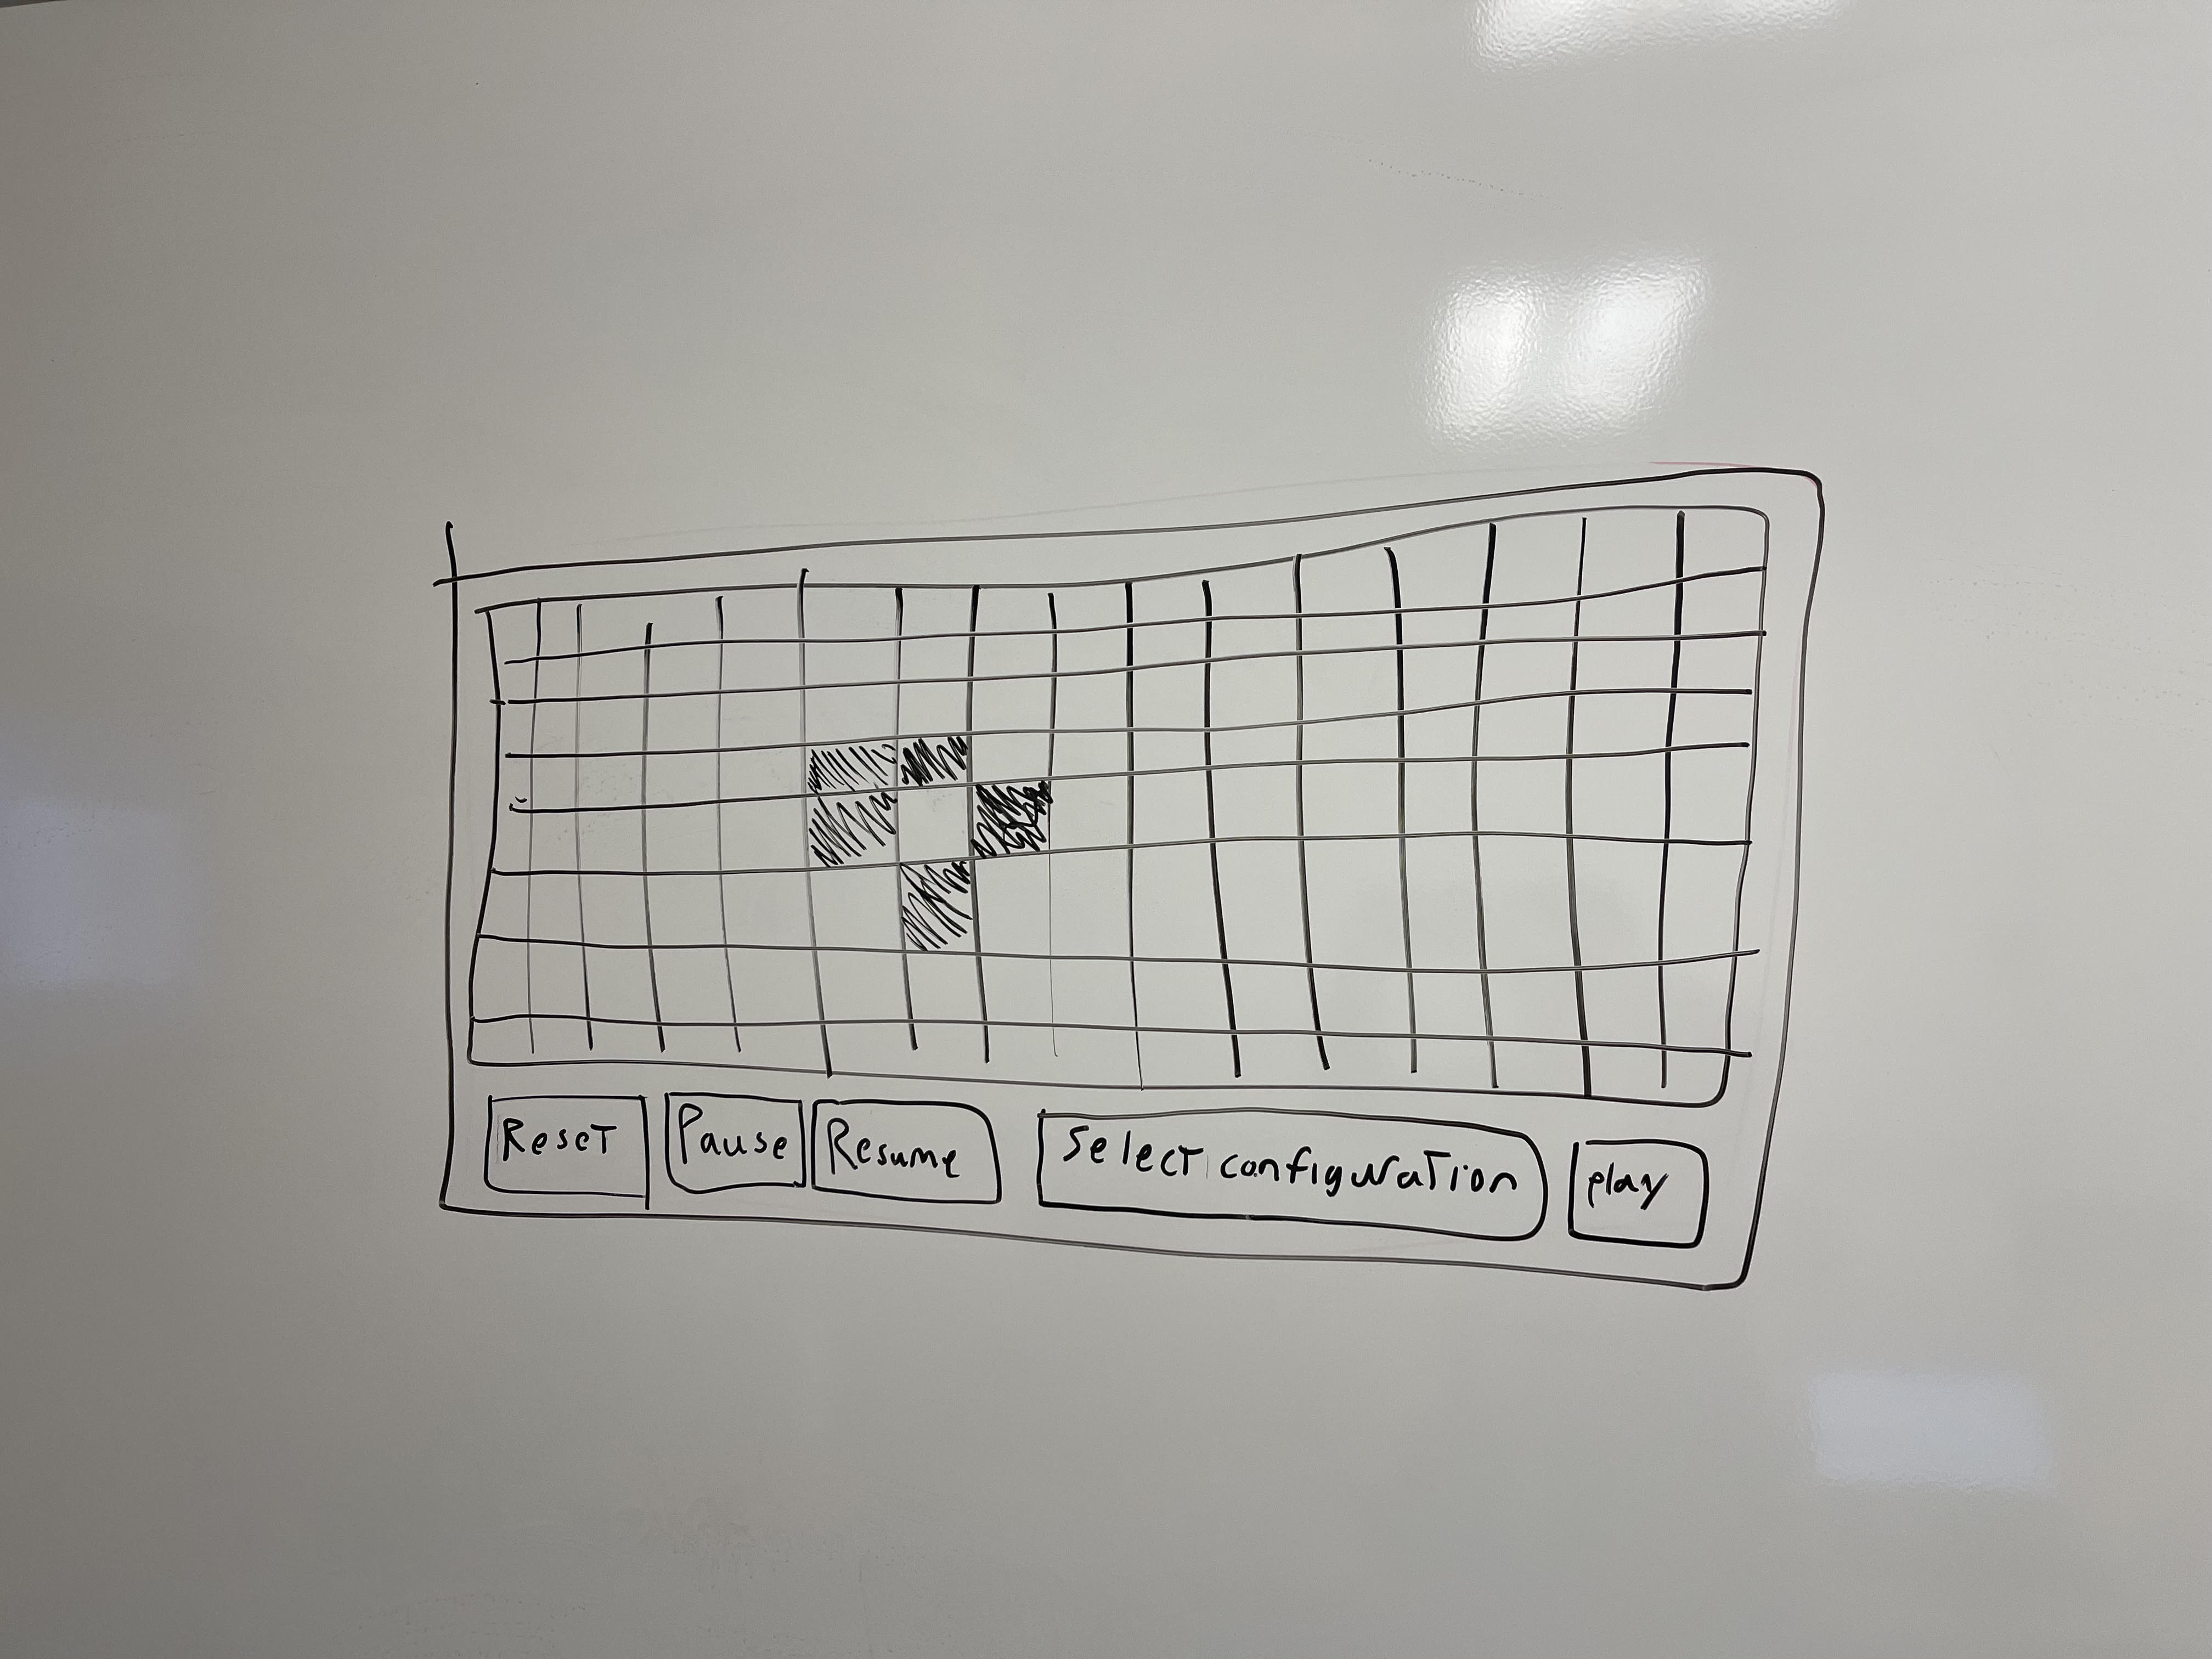 Reset
Pause
Resume
Select configuration
play